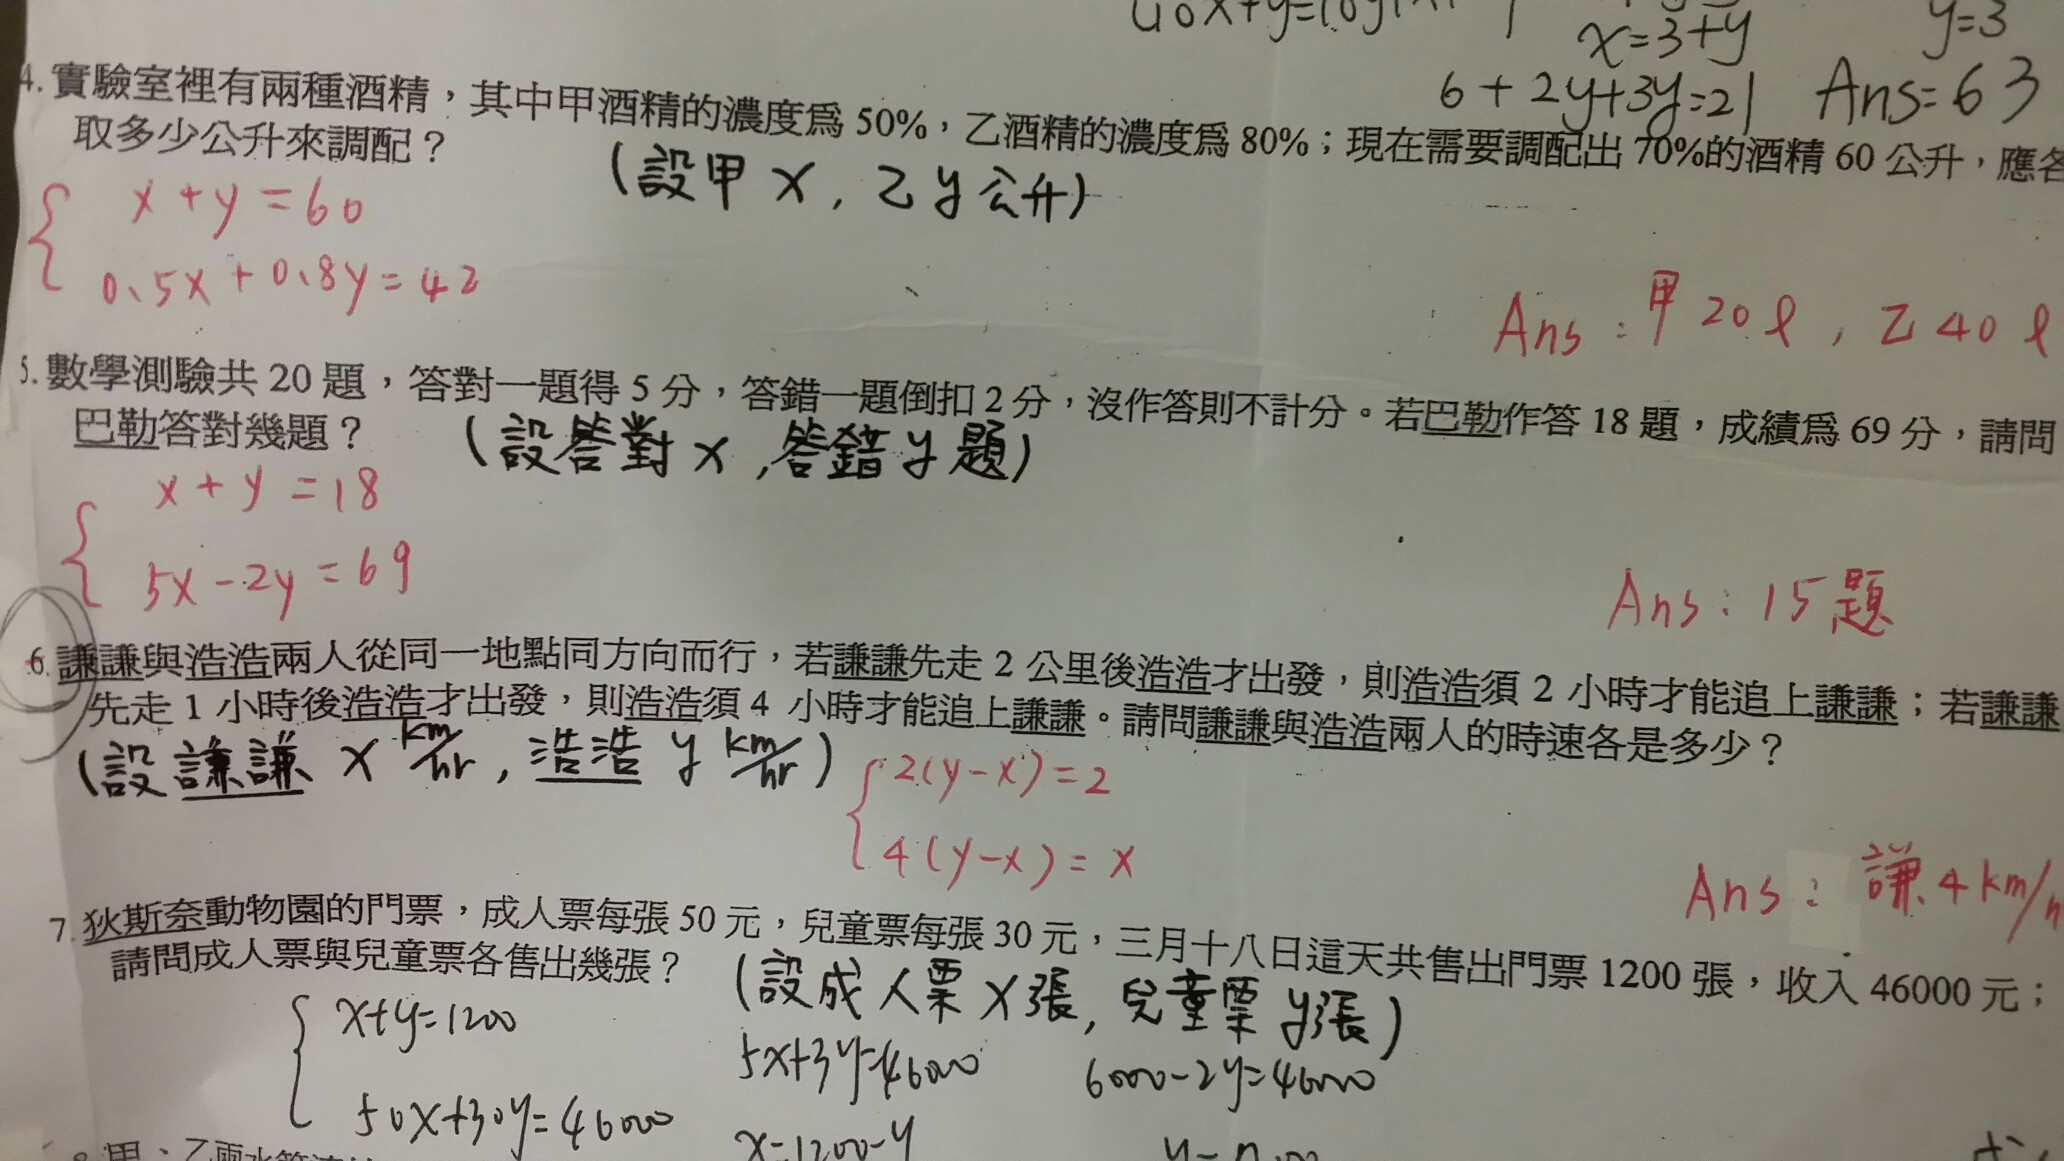 x=3+y
y=3
6+2y+3y=21
Ans=63
4.實驗室裡有兩種酒精，其中甲酒精的濃度為50%，乙酒精的濃度為80%；現在需要調配出70%的酒精60公升，應各
取多少公升來調配？
(設甲x，乙y公升)
x+y=60
0.5x+0.8y=42
Ans：甲20ℓ，乙40ℓ
5.數學測驗共20題，答對一題得5分，答錯一題倒扣2分，沒作答則不計分。若巴勒作答18題，成績為69分，請問
巴勒答對幾題？
(設答對x,答錯y題)
x+y=18
5x-2y=69
Ans：15題
6.謙謙與浩浩兩人從同一地點同方向而行，若謙謙先走2公里後浩浩才出發，則浩浩須2小時才能追上謙謙；若謙謙
先走1小時後浩浩才出發，則浩浩須4小時才能追上謙謙。請問謙謙與浩浩兩人的時速各是多少？
(設謙謙 x km/hr，浩浩 y km/hr)
2(y-x)=2
4(y-x)=x
Ans：謙4km/h
7.狄斯奈動物園的門票，成人票每張50元，兒童票每張30元，三月十八日這天共售出門票1200張，收入46000元；
請問成人票與兒童票各售出幾張？
(設成人票x張，兒童票y張)
x+y=1200
50x+30y=46000
5x+3y=46000
x=1200-y
6000-2y=46000